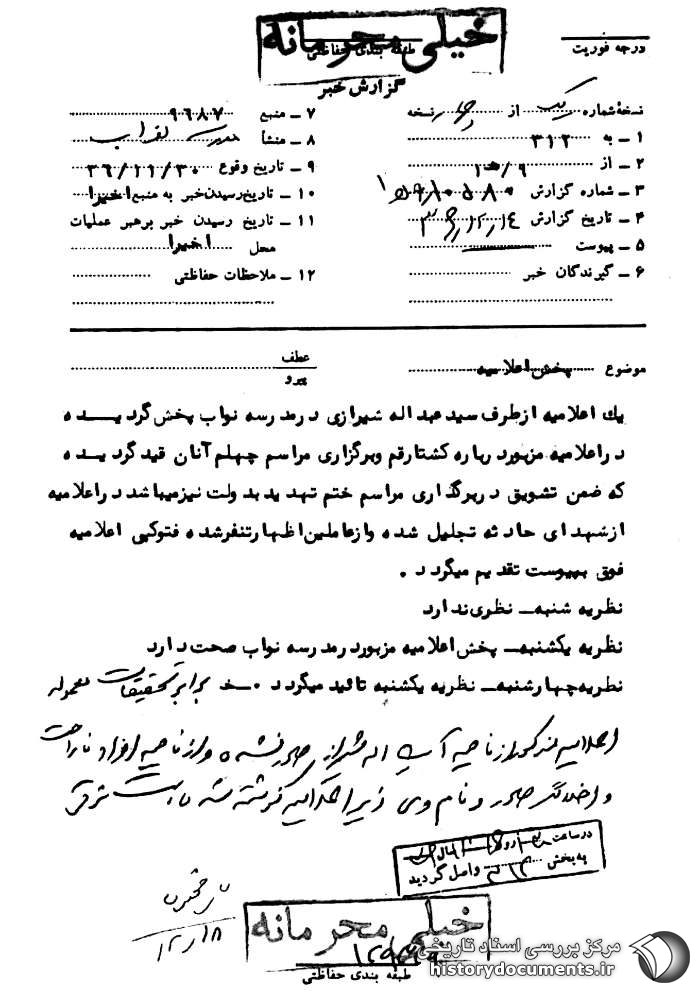 خیلی محرمانه
طبقه بندی حفاظتی
درجه فوریت
گزارش خبر
نسخهٔ شماره یک از نسخه
۱ ـ به ۳۱۲
۲ ـ از
۳ ـ شماره گزارش
۴ ـ تاریخ گزارش
۵ ـ پیوست
۶ ـ گیرندگان خبر
۷ ـ منبع ۹۶۸۷
۸ ـ منشأ مدرسه نواب
۹ ـ تاریخ وقوع ۳۶/۱۱/۳۰
۱۰ ـ تاریخ رسیدن خبر به منبع اخیرا
۱۱ ـ تاریخ رسیدن خبر برهبر عملیات
محل اخیرا
۱۲ ـ ملاحظات حفاظتی
موضوع پخش اعلامیه
عطف
پیرو
یك اعلامیه ازطرف سیدعبداله شیرازی درمدرسه نواب پخش گردیده
دراعلامیه مزبور درباره کشتارقم وبرگزاری مراسم چهلم آنان قید گردیده
که ضمن تشویق دربرگذاری مراسم ختم تهدید بدولت نیزمیباشد دراعلامیه
ازشهدای حادثه تجلیل شده وازعاملین اظهارتنفرشده فتوکپی اعلامیه
فوق بپیوست تقدیم میگردد .
نظریه شنبه ـ نظری ندارد
نظریه یکشنبه ـ پخش اعلامیه مزبور درمدرسه نواب صحت دارد
نظریه چهارشنبه ـ نظریه یکشنبه تائید میگردد . برابر تحقیقات معموله
اعلامیه مذکور از ناحیه آیت اله شیرازی صادر نشده و از ناحیه افراد ناراحت
و اخلالگر صادر و نام وی زیر اعلامیه نوشته شده است
در ساعت
به بخش ۳۱۲ واصل گردید
۱۲/۱۸
خیلی محرمانه
طبقه بندی حفاظتی
مرکز بررسی اسناد تاریخی
historydocuments.ir